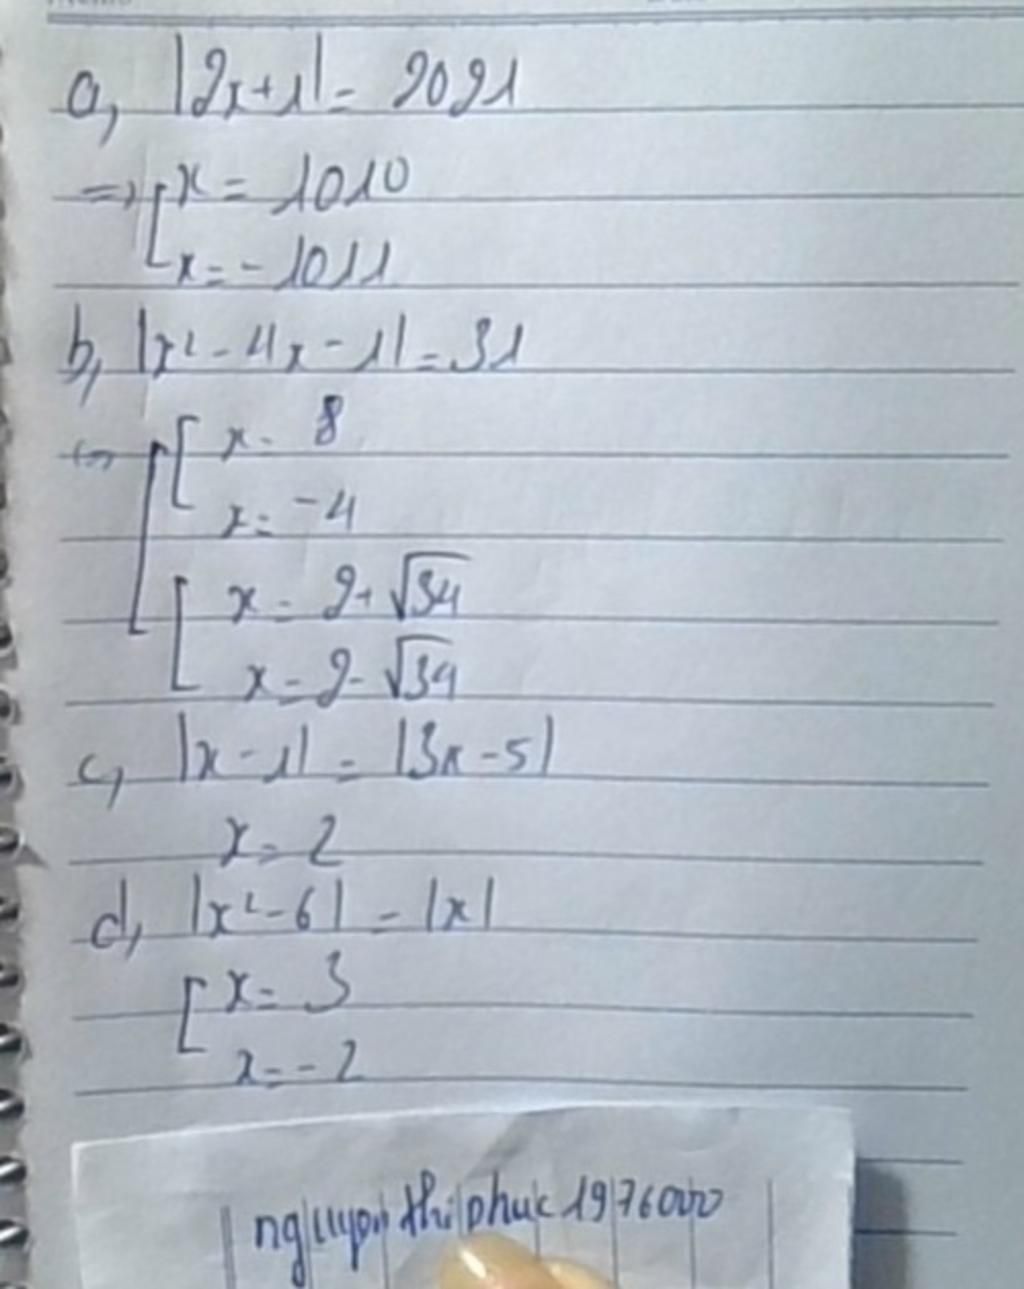 a, |2x+1| = 2021
=> [ x = 1010
x = -1011
b, |x² - 4x - 1| = 31
<=> [ [ x = 8
x = -4
[ x = 2+√34
x = 2-√34
c, |x-1| = |3x-5|
x = 2
d, |x²-6| = |x|
[ x = 3
x = -2
nguyen thi phuc 1976000